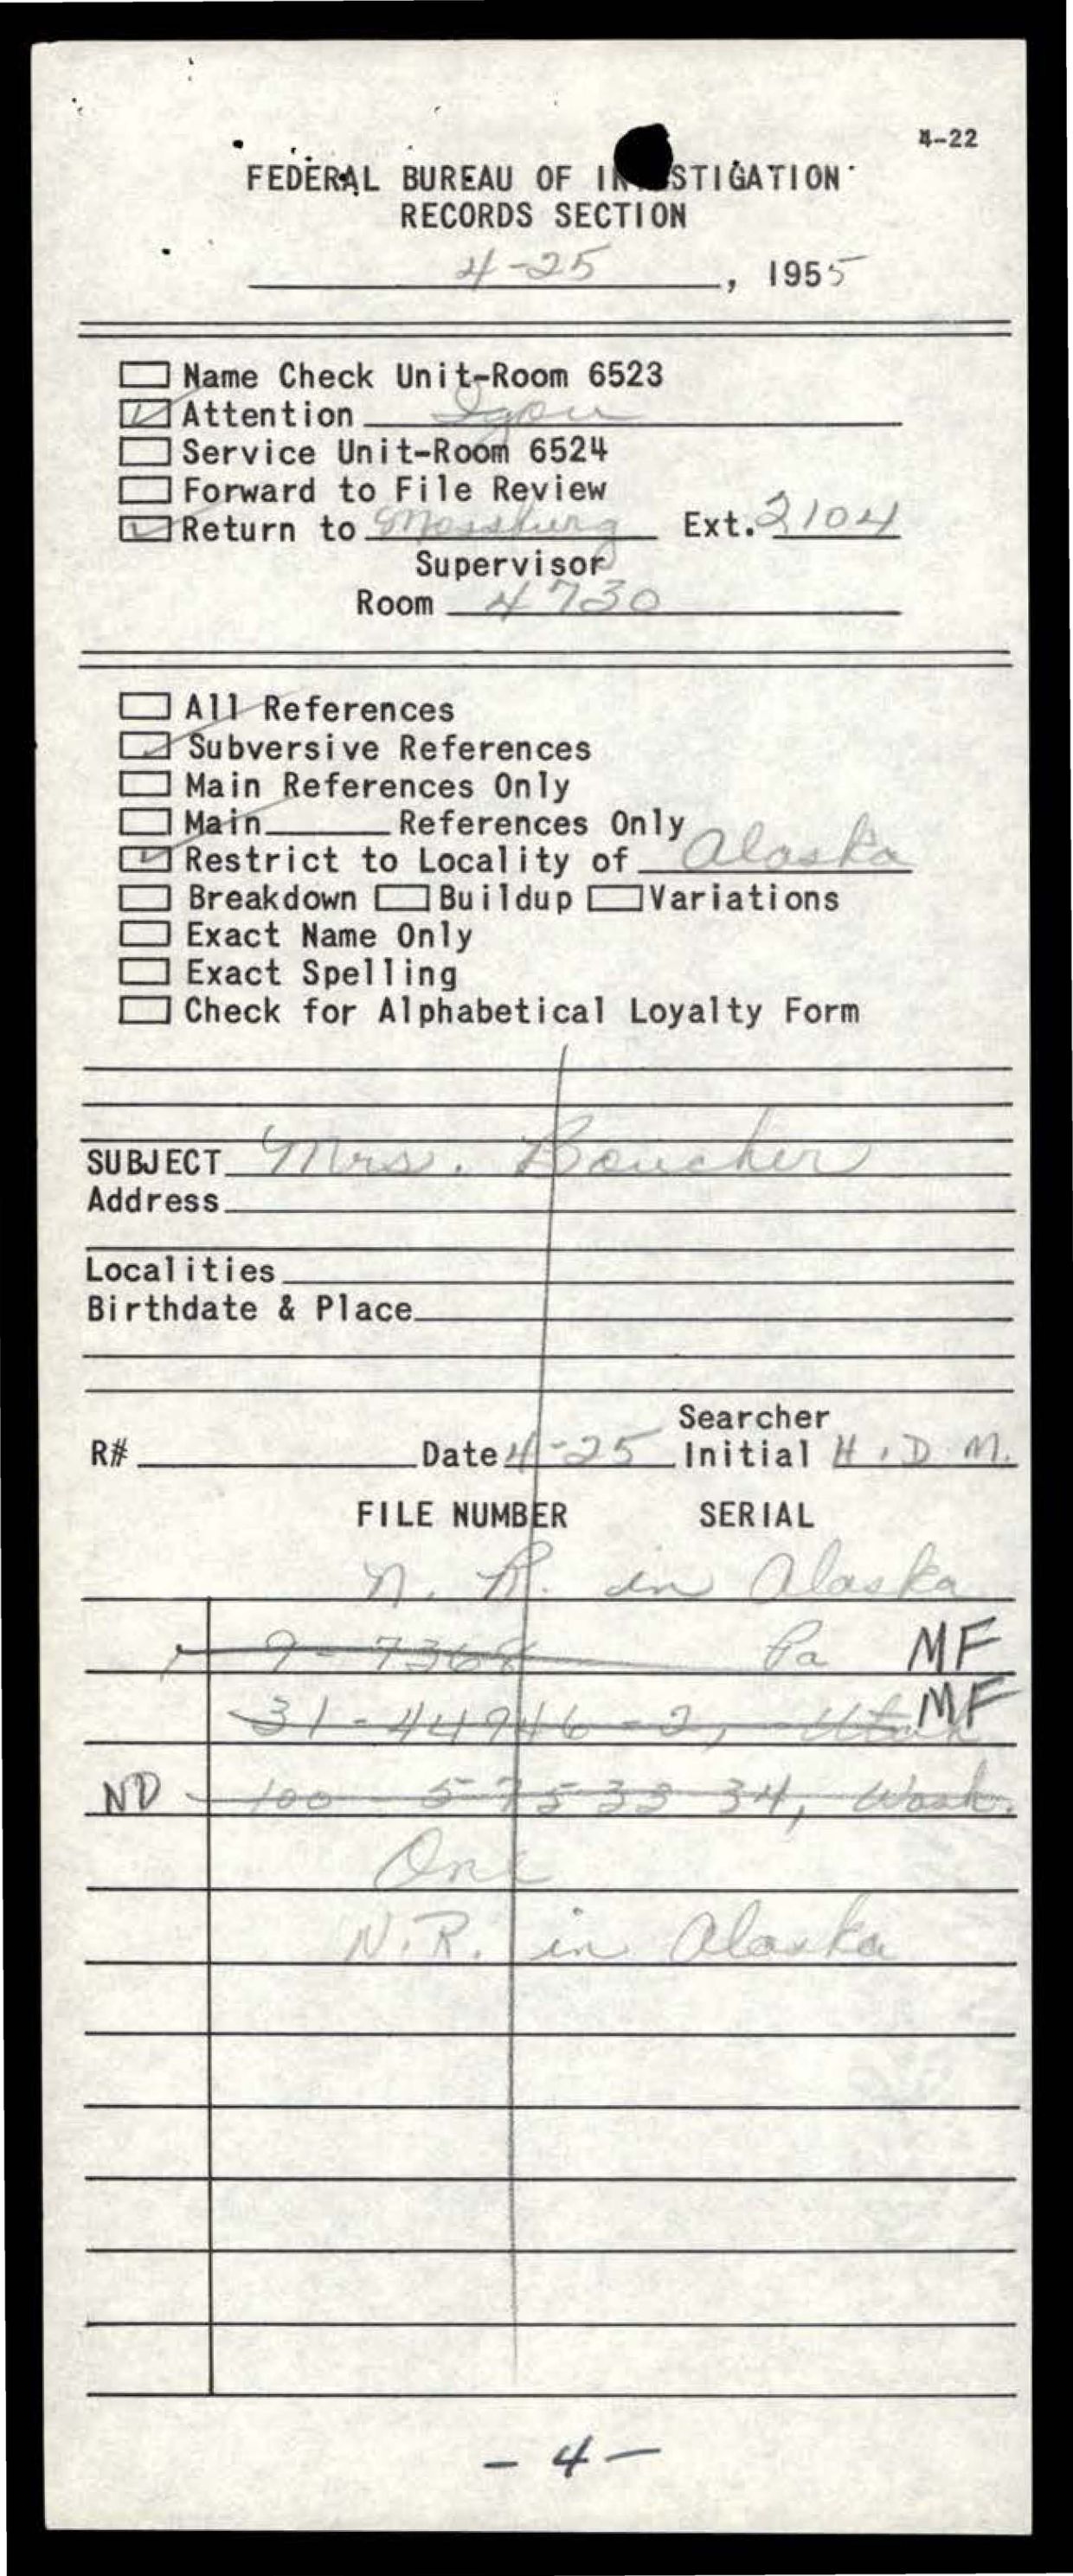 4-22
FEDERAL BUREAU OF INVESTIGATION
RECORDS SECTION
4-25, 1955
Name Check Unit-Room 6523
Attention Igou
Service Unit-Room 6524
Forward to File Review
Return to Mossburg Ext. 2104
Supervisor
Room 4730
All References
Subversive References
Main References Only
Main References Only
Restrict to Locality of Alaska
Breakdown Buildup Variations
Exact Name Only
Exact Spelling
Check for Alphabetical Loyalty Form
SUBJECT Mrs. Boucher
Address
Localities
Birthdate & Place
Searcher
R# Date 4-25 Initial H.D.M.
FILE NUMBER SERIAL
N. R. in Alaska
9-7368 Pa MF
31-44946-2, Utah MF
ND 100-57533 34, Wash.
One
N.R. in Alaska
- 4 -